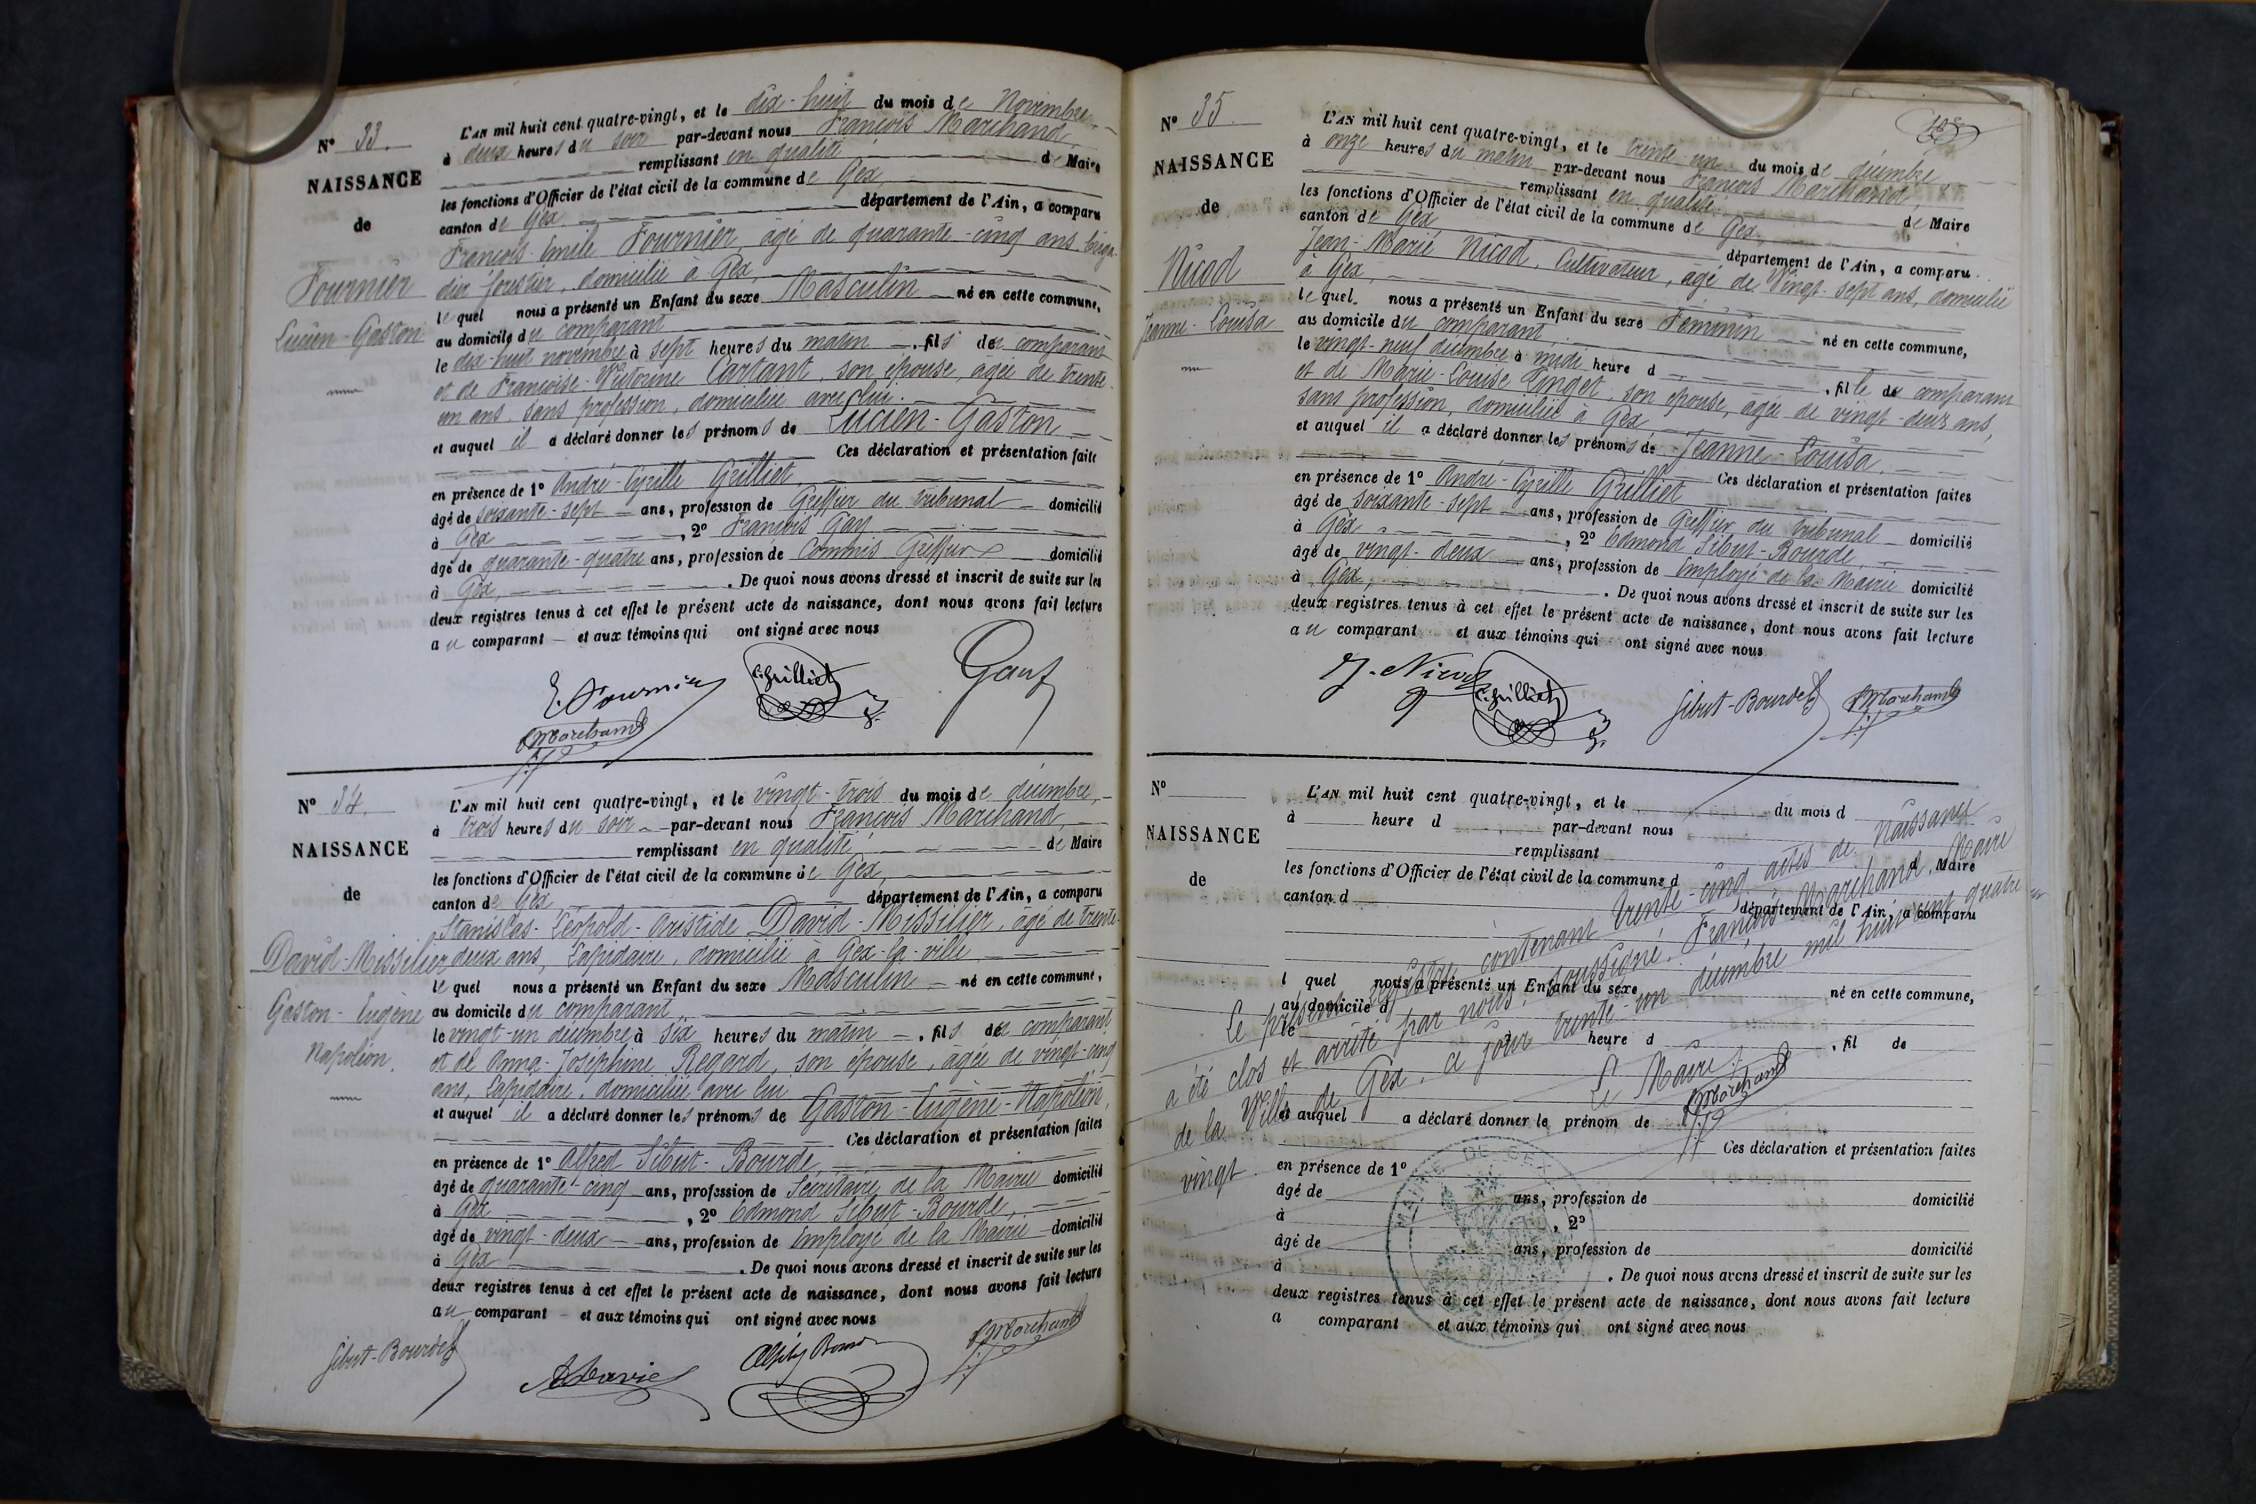 N° 33.
NAISSANCE
de
Fournier
Lucien-Gaston
L'AN mil huit cent quatre-vingt, et le dix-huit du mois de Novembre
à deux heures du soir par-devant nous François Marchand,
remplissant en qualité de Maire
les fonctions d'Officier de l'état civil de la commune de Gex
canton de Gex département de l'Ain, a comparu
François-Emile Fournier, âgé de quarante-cinq ans, briga-
dier forestier, domicilié à Gex,
lequel nous a présenté un Enfant du sexe Masculin né en cette commune,
au domicile du comparant
le dix-huit novembre à sept heures du matin, fils du comparant
et de Françoise-Victorine Cartant, son épouse, âgée de trente-
un ans, sans profession, domiciliée avec lui.
et auquel il a déclaré donner les prénoms de Lucien-Gaston
Ces déclaration et présentation faites
en présence de 1° André-Cyrille Grilliet
âgé de soixante-sept ans, profession de Greffier du tribunal domicilié
à Gex, 2° François Gay
âgé de quarante-quatre ans, profession de Commis Greffier domicilié
à Gex, . De quoi nous avons dressé et inscrit de suite sur les
deux registres tenus à cet effet le présent acte de naissance, dont nous avons fait lecture
au comparant et aux témoins qui ont signé avec nous
E. Fournier
C. Grilliet
Gay
F Marchand
N° 34.
NAISSANCE
de
David-Missilier
Gaston-Eugène
Napoléon.
L'AN mil huit cent quatre-vingt, et le vingt-trois du mois de décembre,
à trois heures du soir par-devant nous François Marchand,
remplissant en qualité de Maire
les fonctions d'Officier de l'état civil de la commune de Gex,
canton de Gex département de l'Ain, a comparu
Stanislas-Léopold-Aristide David-Missilier, âgé de trente-
deux ans, Lapidaire, domicilié à Gex-la-ville
lequel nous a présenté un Enfant du sexe Masculin né en cette commune,
au domicile du comparant
le vingt-un décembre à six heures du matin, fils du comparant
et de Anna-Joséphine Regard, son épouse, âgée de vingt-cinq
ans, Lapidaire, domiciliée avec lui
et auquel il a déclaré donner les prénoms de Gaston-Eugène-Napoléon,
Ces déclaration et présentation faites
en présence de 1° Alfred Sibut-Bourde,
âgé de quarante-cinq ans, profession de Secrétaire de la Mairie domicilié
à Gex, 2° Edmond Sibut-Bourde,
âgé de vingt-deux ans, profession de Employé de la Mairie domicilié
à Gex . De quoi nous avons dressé et inscrit de suite sur les
deux registres tenus à cet effet le présent acte de naissance, dont nous avons fait lecture
au comparant et aux témoins qui ont signé avec nous
Sibut-Bourde
F Marchand
N° 35.
NAISSANCE
de
Nicod
Jeanne-Louisa
L'AN mil huit cent quatre-vingt, et le trente-un du mois de décembre
à onze heures du matin par-devant nous François Marchand,
remplissant en qualité de Maire
les fonctions d'Officier de l'état civil de la commune de Gex
canton de Gex département de l'Ain, a comparu
Jean-Marie Nicod, Cultivateur, âgé de Vingt-sept ans, domicilié
à Gex,
lequel nous a présenté un Enfant du sexe Féminin né en cette commune,
au domicile du comparant,
le vingt-neuf décembre à midi heure d , fille du comparant
et de Marie-Louise Linget, son épouse, âgée de vingt-deux ans,
sans profession, domiciliée à Gex,
et auquel il a déclaré donner les prénoms de Jeanne-Louisa.
Ces déclaration et présentation faites
en présence de 1° André-Cyrille Grilliet
âgé de soixante-sept ans, profession de Greffier du tribunal domicilié
à Gex, 2° Edmond Sibut-Bourde,
âgé de vingt-deux ans, profession de Employé de la Mairie domicilié
à Gex, . De quoi nous avons dressé et inscrit de suite sur les
deux registres tenus à cet effet le présent acte de naissance, dont nous avons fait lecture
au comparant et aux témoins qui ont signé avec nous
J. Nicod
C. Grilliet
Sibut-Bourde
F Marchand
N°
NAISSANCE
de
L'AN mil huit cent quatre-vingt, et le du mois d
à heure d par-devant nous
remplissant d Maire
les fonctions d'Officier de l'état civil de la commune d
canton d département de l'Ain, a comparu
l quel nous a présenté un Enfant du sexe né en cette commune,
au domicile d
le heure d , fil de
et auquel a déclaré donner le prénom de
Ces déclaration et présentation faites
en présence de 1°
âgé de ans, profession de domicilié
à , 2°
âgé de ans, profession de domicilié
à . De quoi nous avons dressé et inscrit de suite sur les
deux registres tenus à cet effet le présent acte de naissance, dont nous avons fait lecture
a comparant et aux témoins qui ont signé avec nous
Le présent registre contenant trente-cinq actes de Naissances
a été clos et arrêté par nous, soussigné, François Marchand, Maire
de la Ville de Gex, ce jour trente-un décembre mil huit cent quatre
vingt
Le Maire,
F Marchand
MAIRIE DE GEX